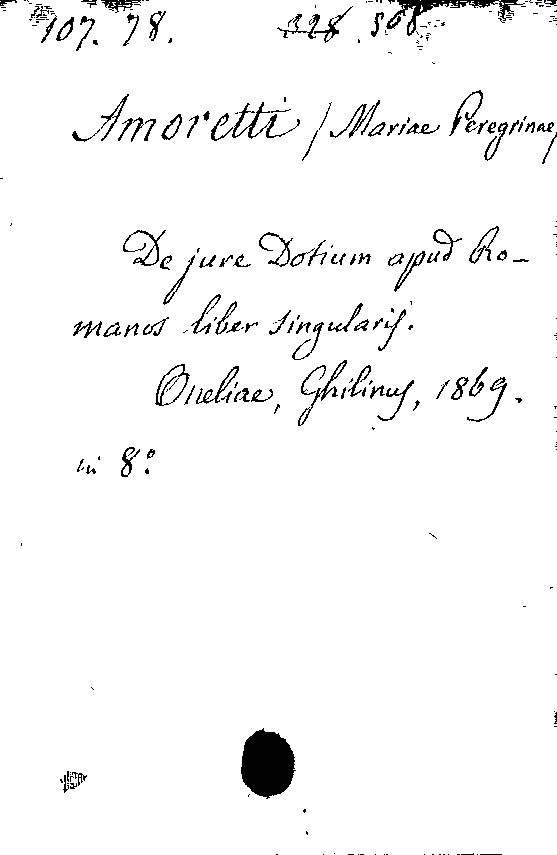 107. 78. 328. 568.
Amoretti / Mariae Peregrinae,
De jure Dotium apud Ro-
manos liber singularis.
Oneliae, Ghilinus, 1869.
in 8º